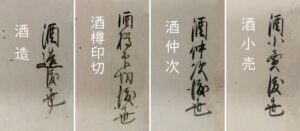 酒造
酒造渡世
酒樽印切
酒樽印切渡世
酒仲次
酒仲次渡世
酒小売
酒小賣渡世